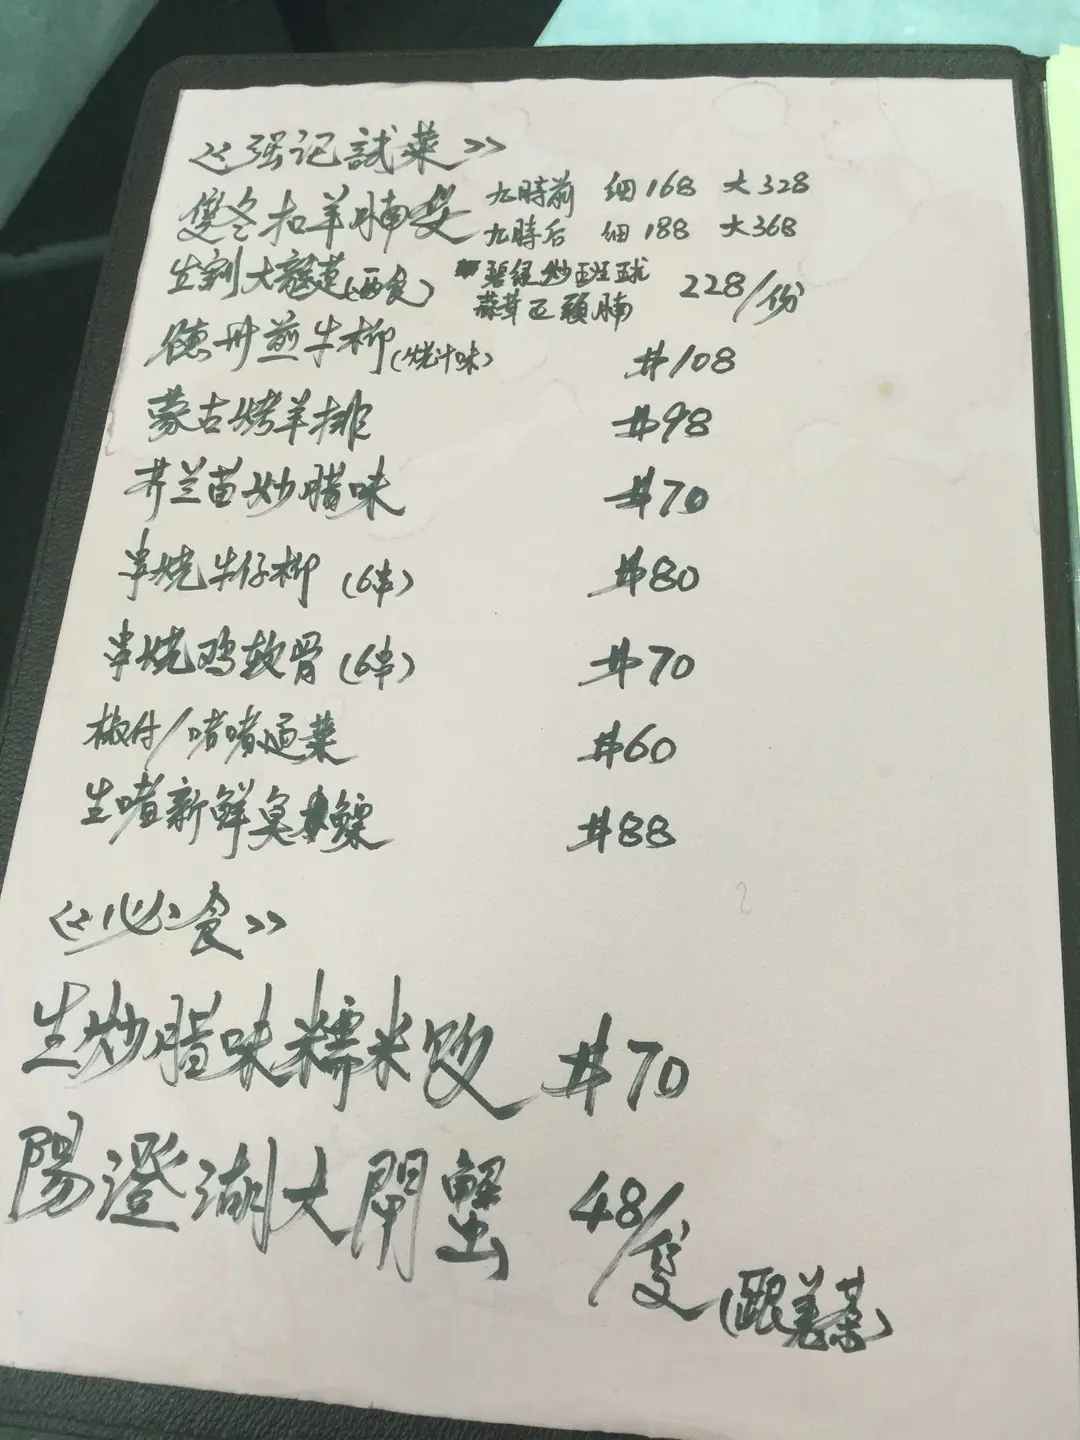 《强记試菜》
雙冬扣羊腩煲 九時前 细168 大328
九時后 细188 大368
生劏大龍趸(两食) 碧绿炒斑球 228/份
蒜茸豆豉腩
德州煎牛柳(烧汁味) #108
蒙古烤羊排 #98
芥兰苗炒腊味 #70
串烧牛仔柳 (6串) #80
串烧鸡软骨 (6串) #70
椒丝/啫啫通菜 #60
生啫新鮮臭鳜 #88
《必食》
生炒腊味糯米饭 #70
陽澄湖大閘蟹 48/隻
(跟姜茶)